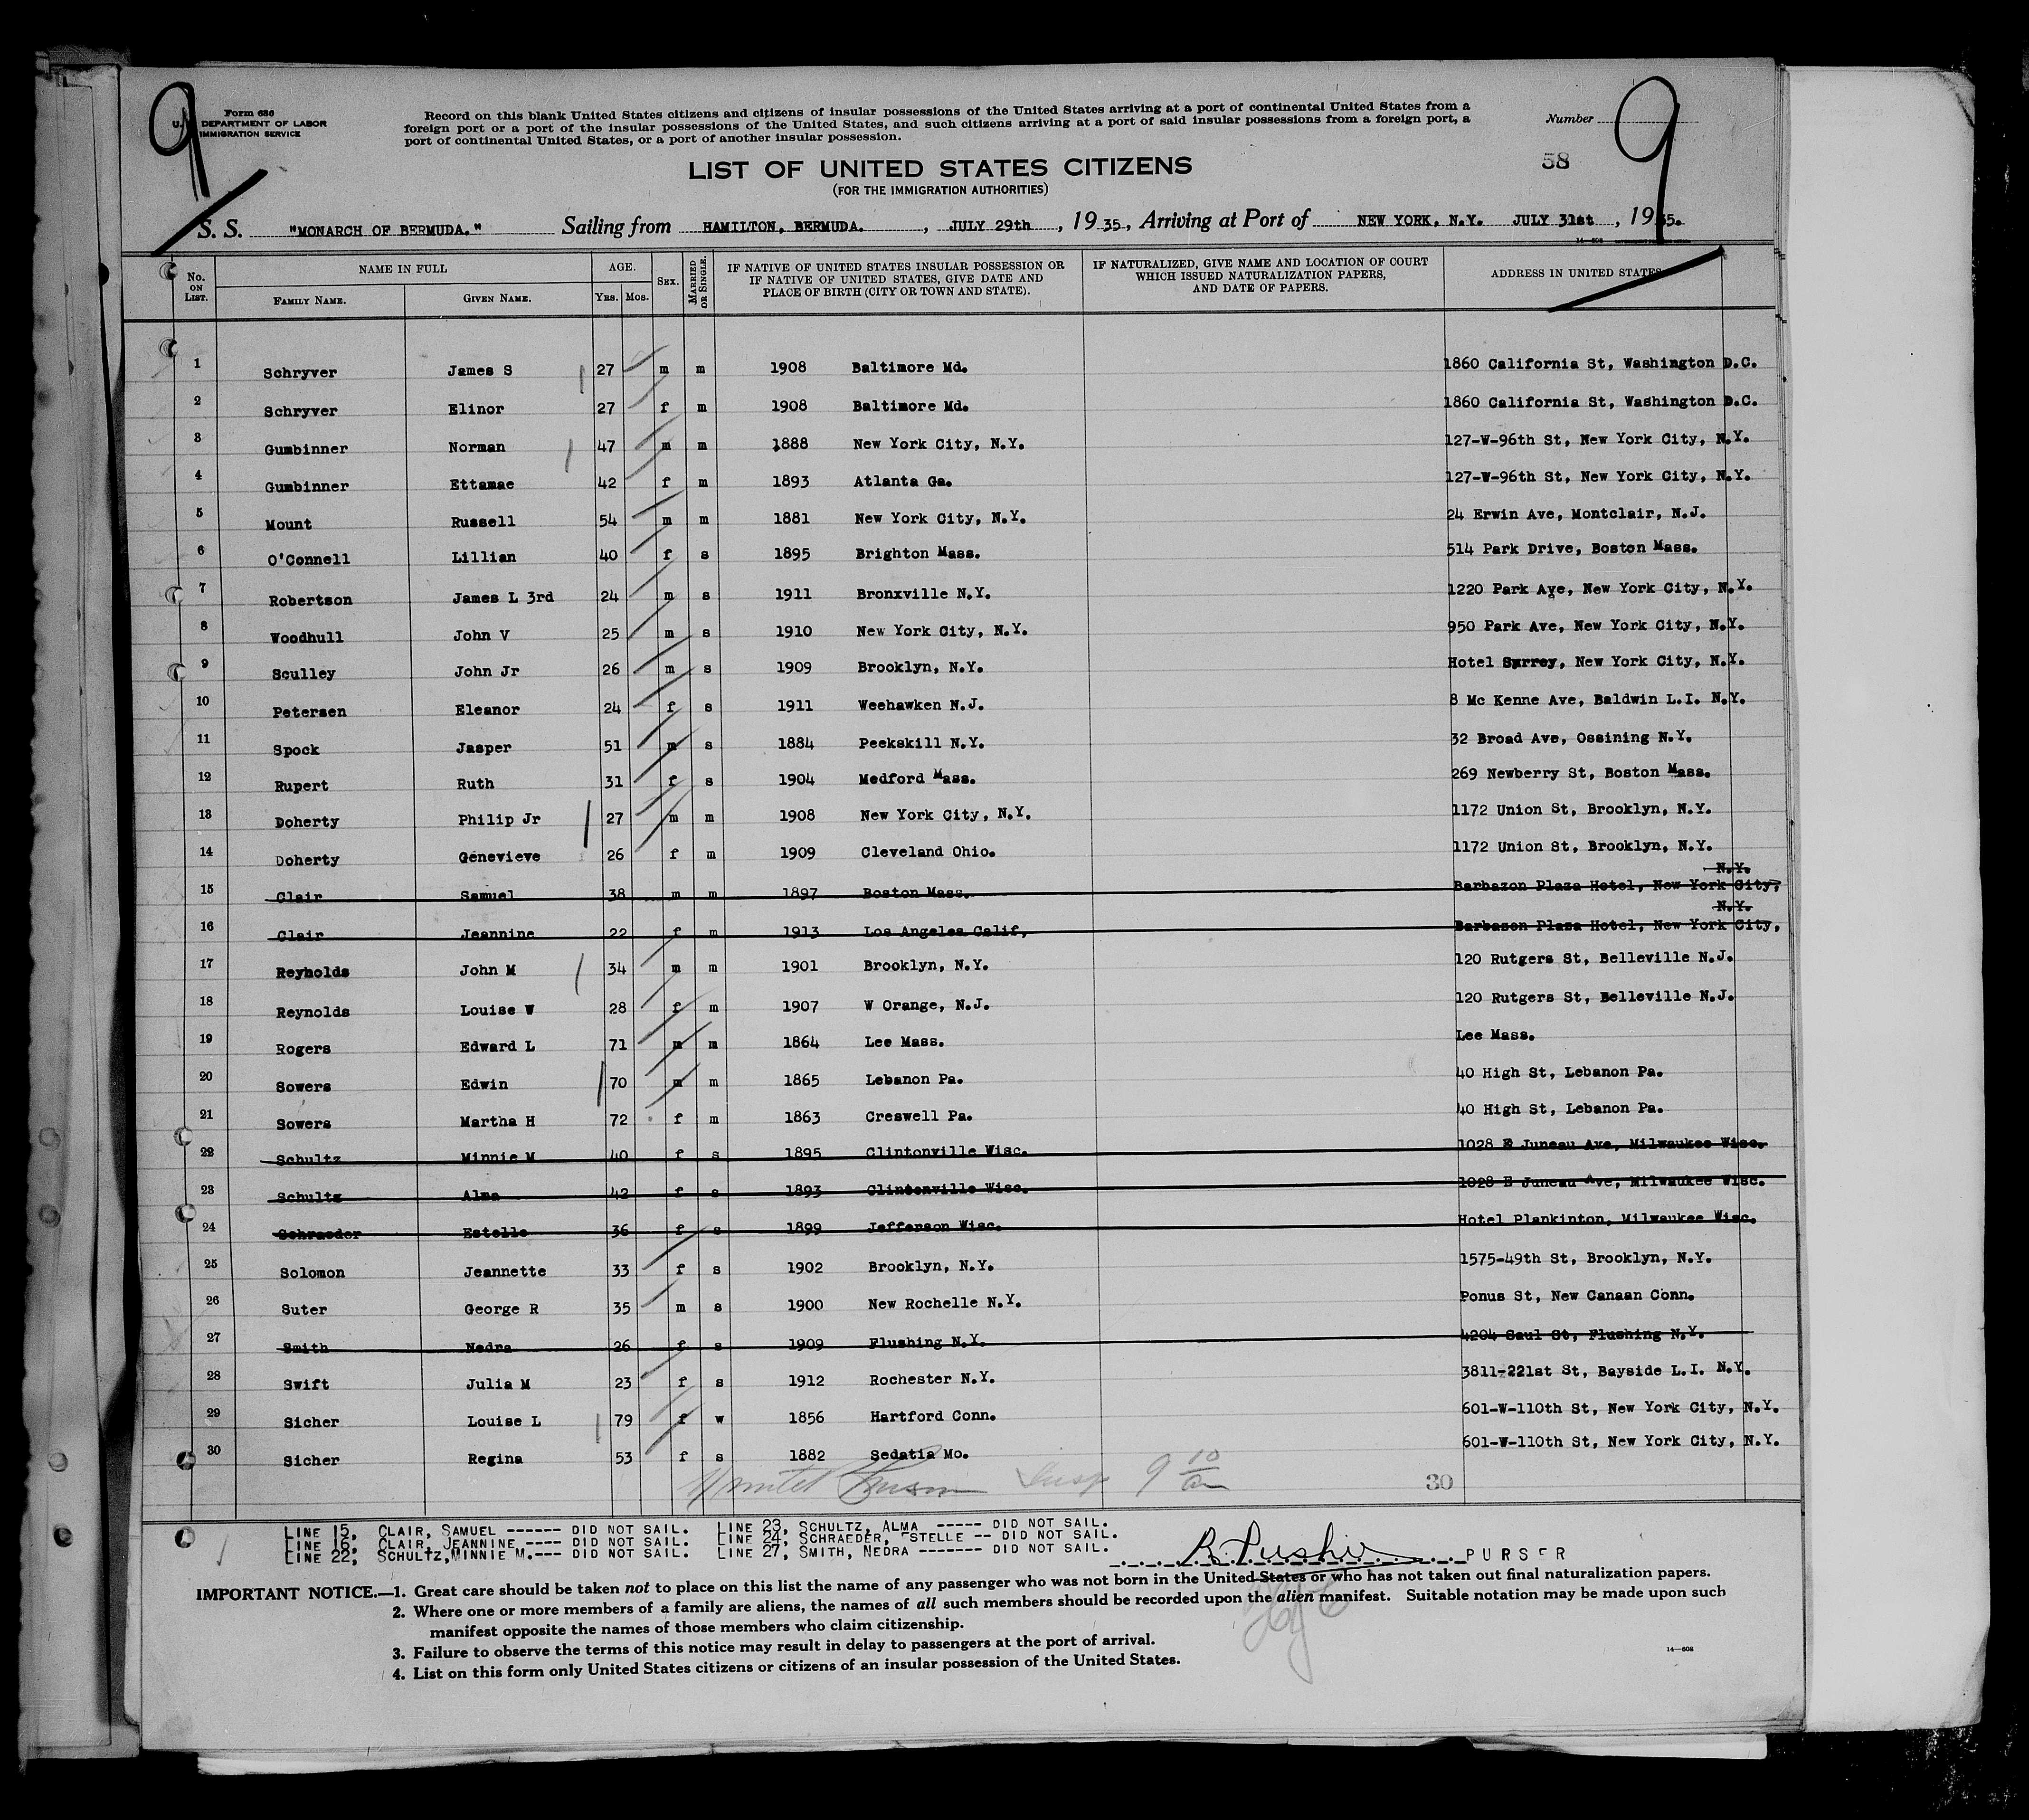 9
9
Form 686
U. S. DEPARTMENT OF LABOR
IMMIGRATION SERVICE
Record on this blank United States citizens and citizens of insular possessions of the United States arriving at a port of continental United States from a
foreign port or a port of the insular possessions of the United States, and such citizens arriving at a port of said insular possessions from a foreign port, a
port of continental United States, or a port of another insular possession.
Number
58
LIST OF UNITED STATES CITIZENS
(FOR THE IMMIGRATION AUTHORITIES)
S. S. "MONARCH OF BERMUDA." Sailing from HAMILTON, BERMUDA. , JULY 29th , 19 35, Arriving at Port of NEW YORK, N.Y. JULY 31st , 19 35.
No. ON LIST. NAME IN FULL FAMILY NAME. GIVEN NAME. AGE. Yrs. Mos. SEX. MARRIED OR SINGLE. IF NATIVE OF UNITED STATES INSULAR POSSESSION OR IF NATIVE OF UNITED STATES, GIVE DATE AND PLACE OF BIRTH (CITY OR TOWN AND STATE). IF NATURALIZED, GIVE NAME AND LOCATION OF COURT WHICH ISSUED NATURALIZATION PAPERS, AND DATE OF PAPERS. ADDRESS IN UNITED STATES
1 Schryver James S 27 m m 1908 Baltimore Md. 1860 California St, Washington D.C.
2 Schryver Elinor 27 f m 1908 Baltimore Md. 1860 California St, Washington D.C.
3 Gumbinner Norman 47 m m 1888 New York City, N.Y. 127-W-96th St, New York City, N.Y.
4 Gumbinner Ettamae 42 f m 1893 Atlanta Ga. 127-W-96th St, New York City, N.Y.
5 Mount Russell 54 m m 1881 New York City, N.Y. 24 Erwin Ave, Montclair, N.J.
6 O'Connell Lillian 40 f s 1895 Brighton Mass. 514 Park Drive, Boston Mass.
7 Robertson James L 3rd 24 m s 1911 Bronxville N.Y. 1220 Park Ave, New York City, N.Y.
8 Woodhull John V 25 m s 1910 New York City, N.Y. 950 Park Ave, New York City, N.Y.
9 Sculley John Jr 26 m s 1909 Brooklyn, N.Y. Hotel Surrey, New York City, N.Y.
10 Petersen Eleanor 24 f s 1911 Weehawken N.J. 8 Mc Kenne Ave, Baldwin L.I. N.Y.
11 Spock Jasper 51 m s 1884 Peekskill N.Y. 32 Broad Ave, Ossining N.Y.
12 Rupert Ruth 31 f s 1904 Medford Mass. 269 Newberry St, Boston Mass.
13 Doherty Philip Jr 27 m m 1908 New York City, N.Y. 1172 Union St, Brooklyn, N.Y.
14 Doherty Genevieve 26 f m 1909 Cleveland Ohio. 1172 Union St, Brooklyn, N.Y.
15 Clair Samuel 38 m m 1897 Boston Mass. Barbazon Plaza Hotel, New York City, N.Y.
16 Clair Jeannine 22 f m 1913 Los Angeles Calif, Barbazon Plaza Hotel, New York City, N.Y.
17 Reyholds John M 34 m m 1901 Brooklyn, N.Y. 120 Rutgers St, Belleville N.J.
18 Reynolds Louise W 28 f m 1907 W Orange, N.J. 120 Rutgers St, Belleville N.J.
19 Rogers Edward L 71 m m 1864 Lee Mass. Lee Mass.
20 Sowers Edwin 70 m m 1865 Lebanon Pa. 40 High St, Lebanon Pa.
21 Sowers Martha H 72 f m 1863 Creswell Pa. 40 High St, Lebanon Pa.
22 Schultz Minnie M 40 f s 1895 Clintonville Wisc. 1028 E Juneau Ave, Milwaukee Wisc.
23 Schultz Alma 42 f s 1893 Clintonville Wisc. 1028 E Juneau Ave, Milwaukee Wisc.
24 Schraeder Estelle 36 f s 1899 Jefferson Wisc. Hotel Plankinton, Milwaukee Wisc.
25 Solomon Jeannette 33 f s 1902 Brooklyn, N.Y. 1575-49th St, Brooklyn, N.Y.
26 Suter George R 35 m s 1900 New Rochelle N.Y. Ponus St, New Canaan Conn.
27 Smith Nedra 26 f s 1909 Flushing N.Y. 4204 Saul St, Flushing N.Y.
28 Swift Julia M 23 f s 1912 Rochester N.Y. 3811-221st St, Bayside L.I. N.Y.
29 Sicher Louise L 79 f w 1856 Hartford Conn. 601-W-110th St, New York City, N.Y.
30 Sicher Regina 53 f s 1882 Sedatia Mo. 601-W-110th St, New York City, N.Y.
30
LINE 15, CLAIR, SAMUEL ------ DID NOT SAIL. LINE 23, SCHULTZ, ALMA ----- DID NOT SAIL.
LINE 16, CLAIR, JEANNINE ---- DID NOT SAIL. LINE 24, SCHRAEDER, ESTELLE -- DID NOT SAIL.
LINE 22, SCHULTZ, MINNIE M.--- DID NOT SAIL. LINE 27, SMITH, NEDRA ------- DID NOT SAIL.
PURSER
IMPORTANT NOTICE.—1. Great care should be taken not to place on this list the name of any passenger who was not born in the United States or who has not taken out final naturalization papers.
2. Where one or more members of a family are aliens, the names of all such members should be recorded upon the alien manifest. Suitable notation may be made upon such
manifest opposite the names of those members who claim citizenship.
3. Failure to observe the terms of this notice may result in delay to passengers at the port of arrival.
4. List on this form only United States citizens or citizens of an insular possession of the United States.
14—608